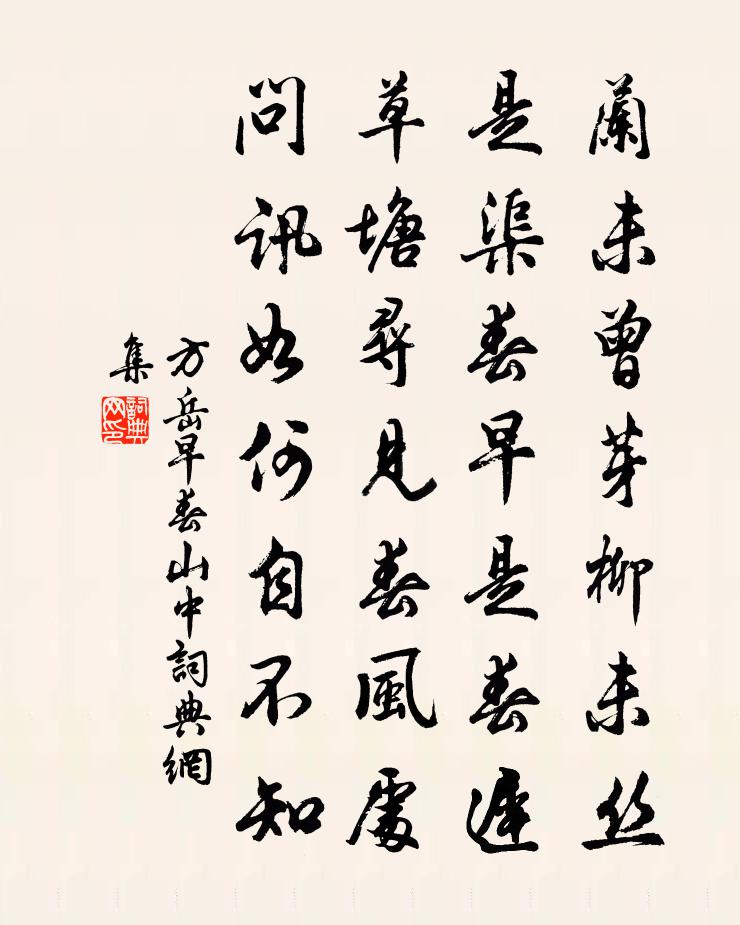 蘭未曾芽柳未丝
是渠春早是春遲
草塘尋見春風處
問訊如何自不知
方岳早春山中詞典網
集
詞典
网印